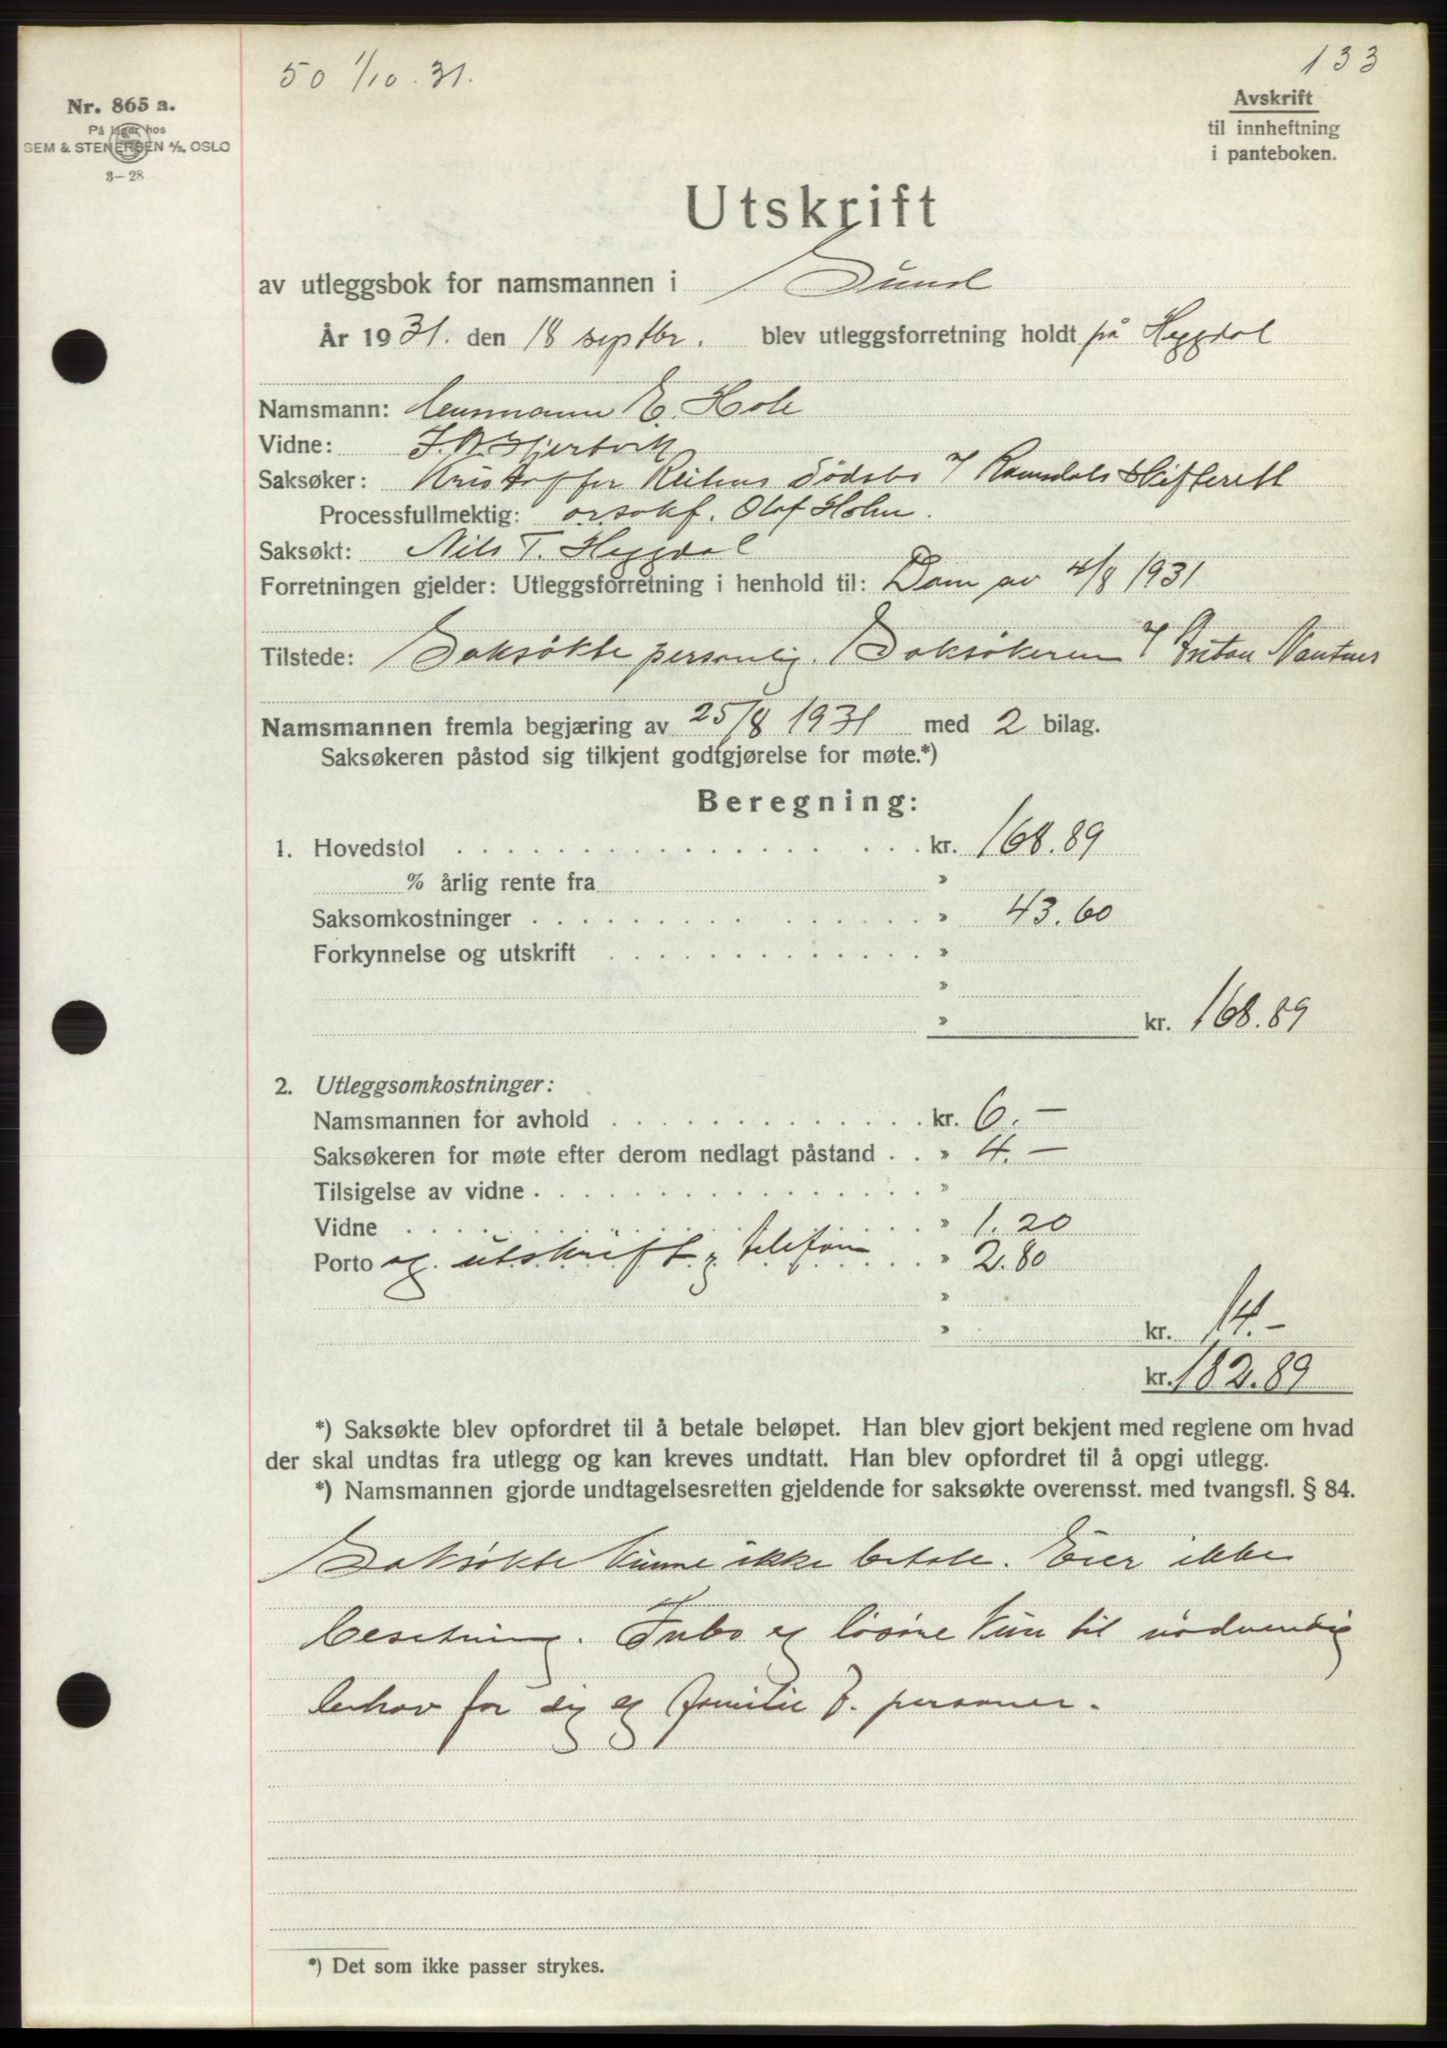 133
50 1/10.31.
Nr. 865 a.
På lager hos
SEM & STENERSEN A/S, OSLO
3–28
Avskrift
til innheftning
i panteboken.
Utskrift
av utleggsbok for namsmannen i Sund
År 1931. den 18 septbr. blev utleggsforretning holdt på Heggdal
Namsmann: lensmann E. Hole
Vidne:
Saksøker: Kristoffer dødsbo v/ Romsdals Skifterett
Processfullmektig: orsakf. Olaf Holm.
Saksøkt: Nils T. Heggdal
Forretningen gjelder: Utleggsforretning i henhold til: Dom av 4/8 1931
Tilstede: Saksøkte personlig. Saksøkeren v/ Anton
Namsmannen fremla begjæring av 25/8 1931 med 2 bilag.
Saksøkeren påstod sig tilkjent godtgjørelse for møte.*)
Beregning:
1. Hovedstol . . . kr. 168.89
% årlig rente fra »
Saksomkostninger . . . » 43.60
Forkynnelse og utskrift . . . »
»
» kr. 168.89
2. Utleggsomkostninger:
Namsmannen for avhold . . . kr. 6.–
Saksøkeren for møte efter derom nedlagt påstand . . » 4.–
Tilsigelse av vidne . . . »
Vidne . . . » 1.20
Porto og utskrift, telefon . . . » 2.80
»
» kr. 14.–
kr. 182.89
*) Saksøkte blev opfordret til å betale beløpet. Han blev gjort bekjent med reglene om hvad
der skal undtas fra utlegg og kan kreves undtatt. Han blev opfordret til å opgi utlegg.
*) Namsmannen gjorde undtagelsesretten gjeldende for saksøkte overensst. med tvangsfl. § 84.
Saksøkte kunne ikke betale. Eier ikke
besetning. Inbo og løsøre kun til nødvendig
behov for sig og familie 7. personer.
*) Det som ikke passer strykes.